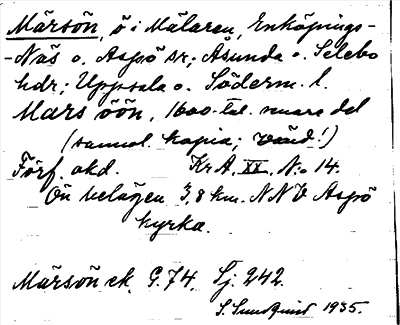 Märsön, ö i Mälaren, Enköpings-
-Näs o. Aspö sr; Åsunda o. Selebo
hdr; Uppsala o. Söderm. l.
Mars öön, 1600-tal. senare del
(samml. kopia; vänd!)
Förf. okd. KrA. XX. N:o 14.
Ön belägen 3,8 km. NNV Aspö
kyrka.
Märsön ek. G. 74, Sj. 242.
S. Sundquist 1935.